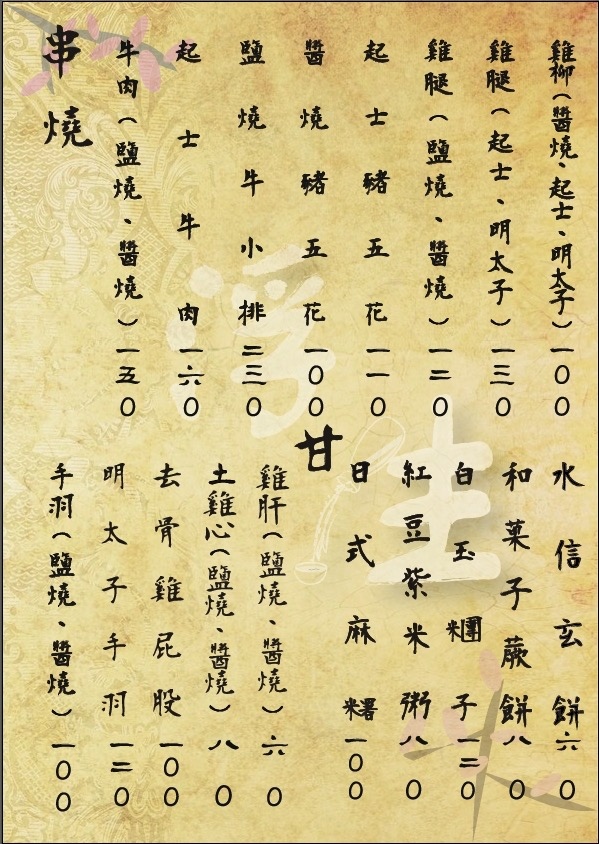 串燒
雞柳(醬燒、起士、明太子)一〇〇
雞腿(起士、明太子)一三〇
雞腿(鹽燒、醬燒)一二〇
起士豬五花一一〇
醬燒豬五花一〇〇
鹽燒牛小排二三〇
起士牛肉一六〇
牛肉(鹽燒、醬燒)一五〇
水信玄餅六〇
和菓子蕨餅八〇
白玉糰子一二〇
紅豆紫米粥八〇
日式麻糬一〇〇
甘
雞肝(鹽燒、醬燒)六〇
土雞心(鹽燒、醬燒)八〇
去骨雞屁股一〇〇
明太子手羽一二〇
手羽(鹽燒、醬燒)一〇〇
浮生